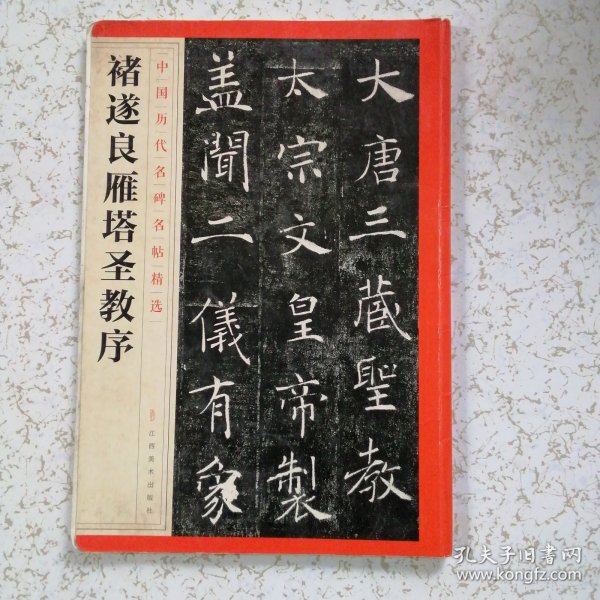 中国历代名碑名帖精选
褚遂良雁塔圣教序
江西美术出版社
大唐三藏聖教
太宗文皇帝製
盖聞二儀有象
孔夫子旧书网
www.kongfz.com